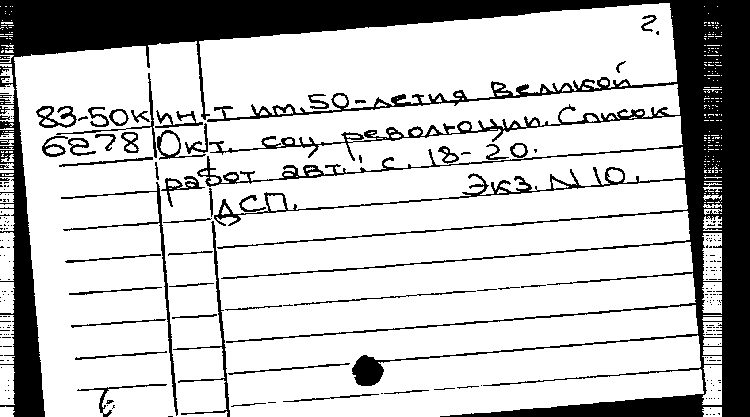 2.
83-50к ин-т им. 50-летия Великой
6278 Окт. соц. революции. Список
работ авт.: с. 18-20.
ДСП. Экз. N 10.
6